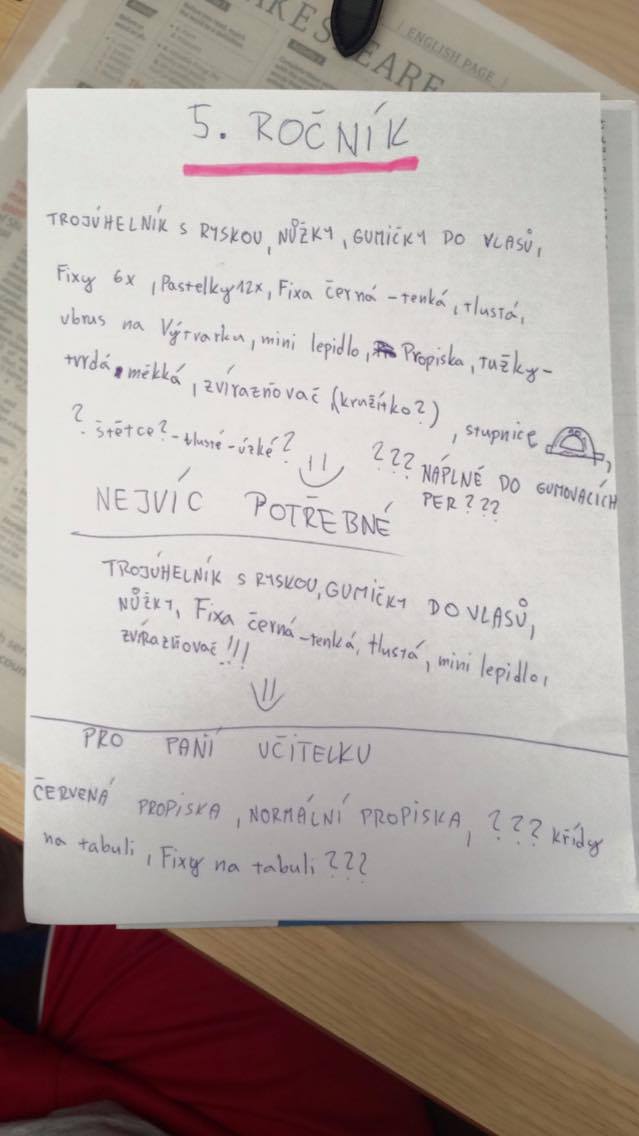 SHAKESPEARE
ENGLISH PAGE
5. ROČNÍK
TROJÚHELNÍK S RYSKOU, NŮŽKY, GUMIČKY DO VLASŮ,
Fixy 6x, Pastelky 12x, Fixa černá - tenká, tlustá,
ubrus na Výtvarku, mini lepidlo, Propiska, TUŽKY -
tvrdá, měkká, zvírazňovač (kružítko?), stupnice ,
? štětce? - tlusté - úzké? ??? NÁPLNĚ DO GUMOVACÍCH
PER ???
NEJVÍC POTŘEBNÉ
TROJÚHELNÍK S RYSKOU, GUMIČKY DO VLASŮ,
NŮŽKY, Fixa černá - tenká, tlustá, mini lepidlo,
zvírazňovač!!!
PRO PANÍ UČITELKU
ČERVENÁ PROPISKA, NORMÁLNÍ PROPISKA, ??? křídy
na tabuli, Fixy na tabuli ???